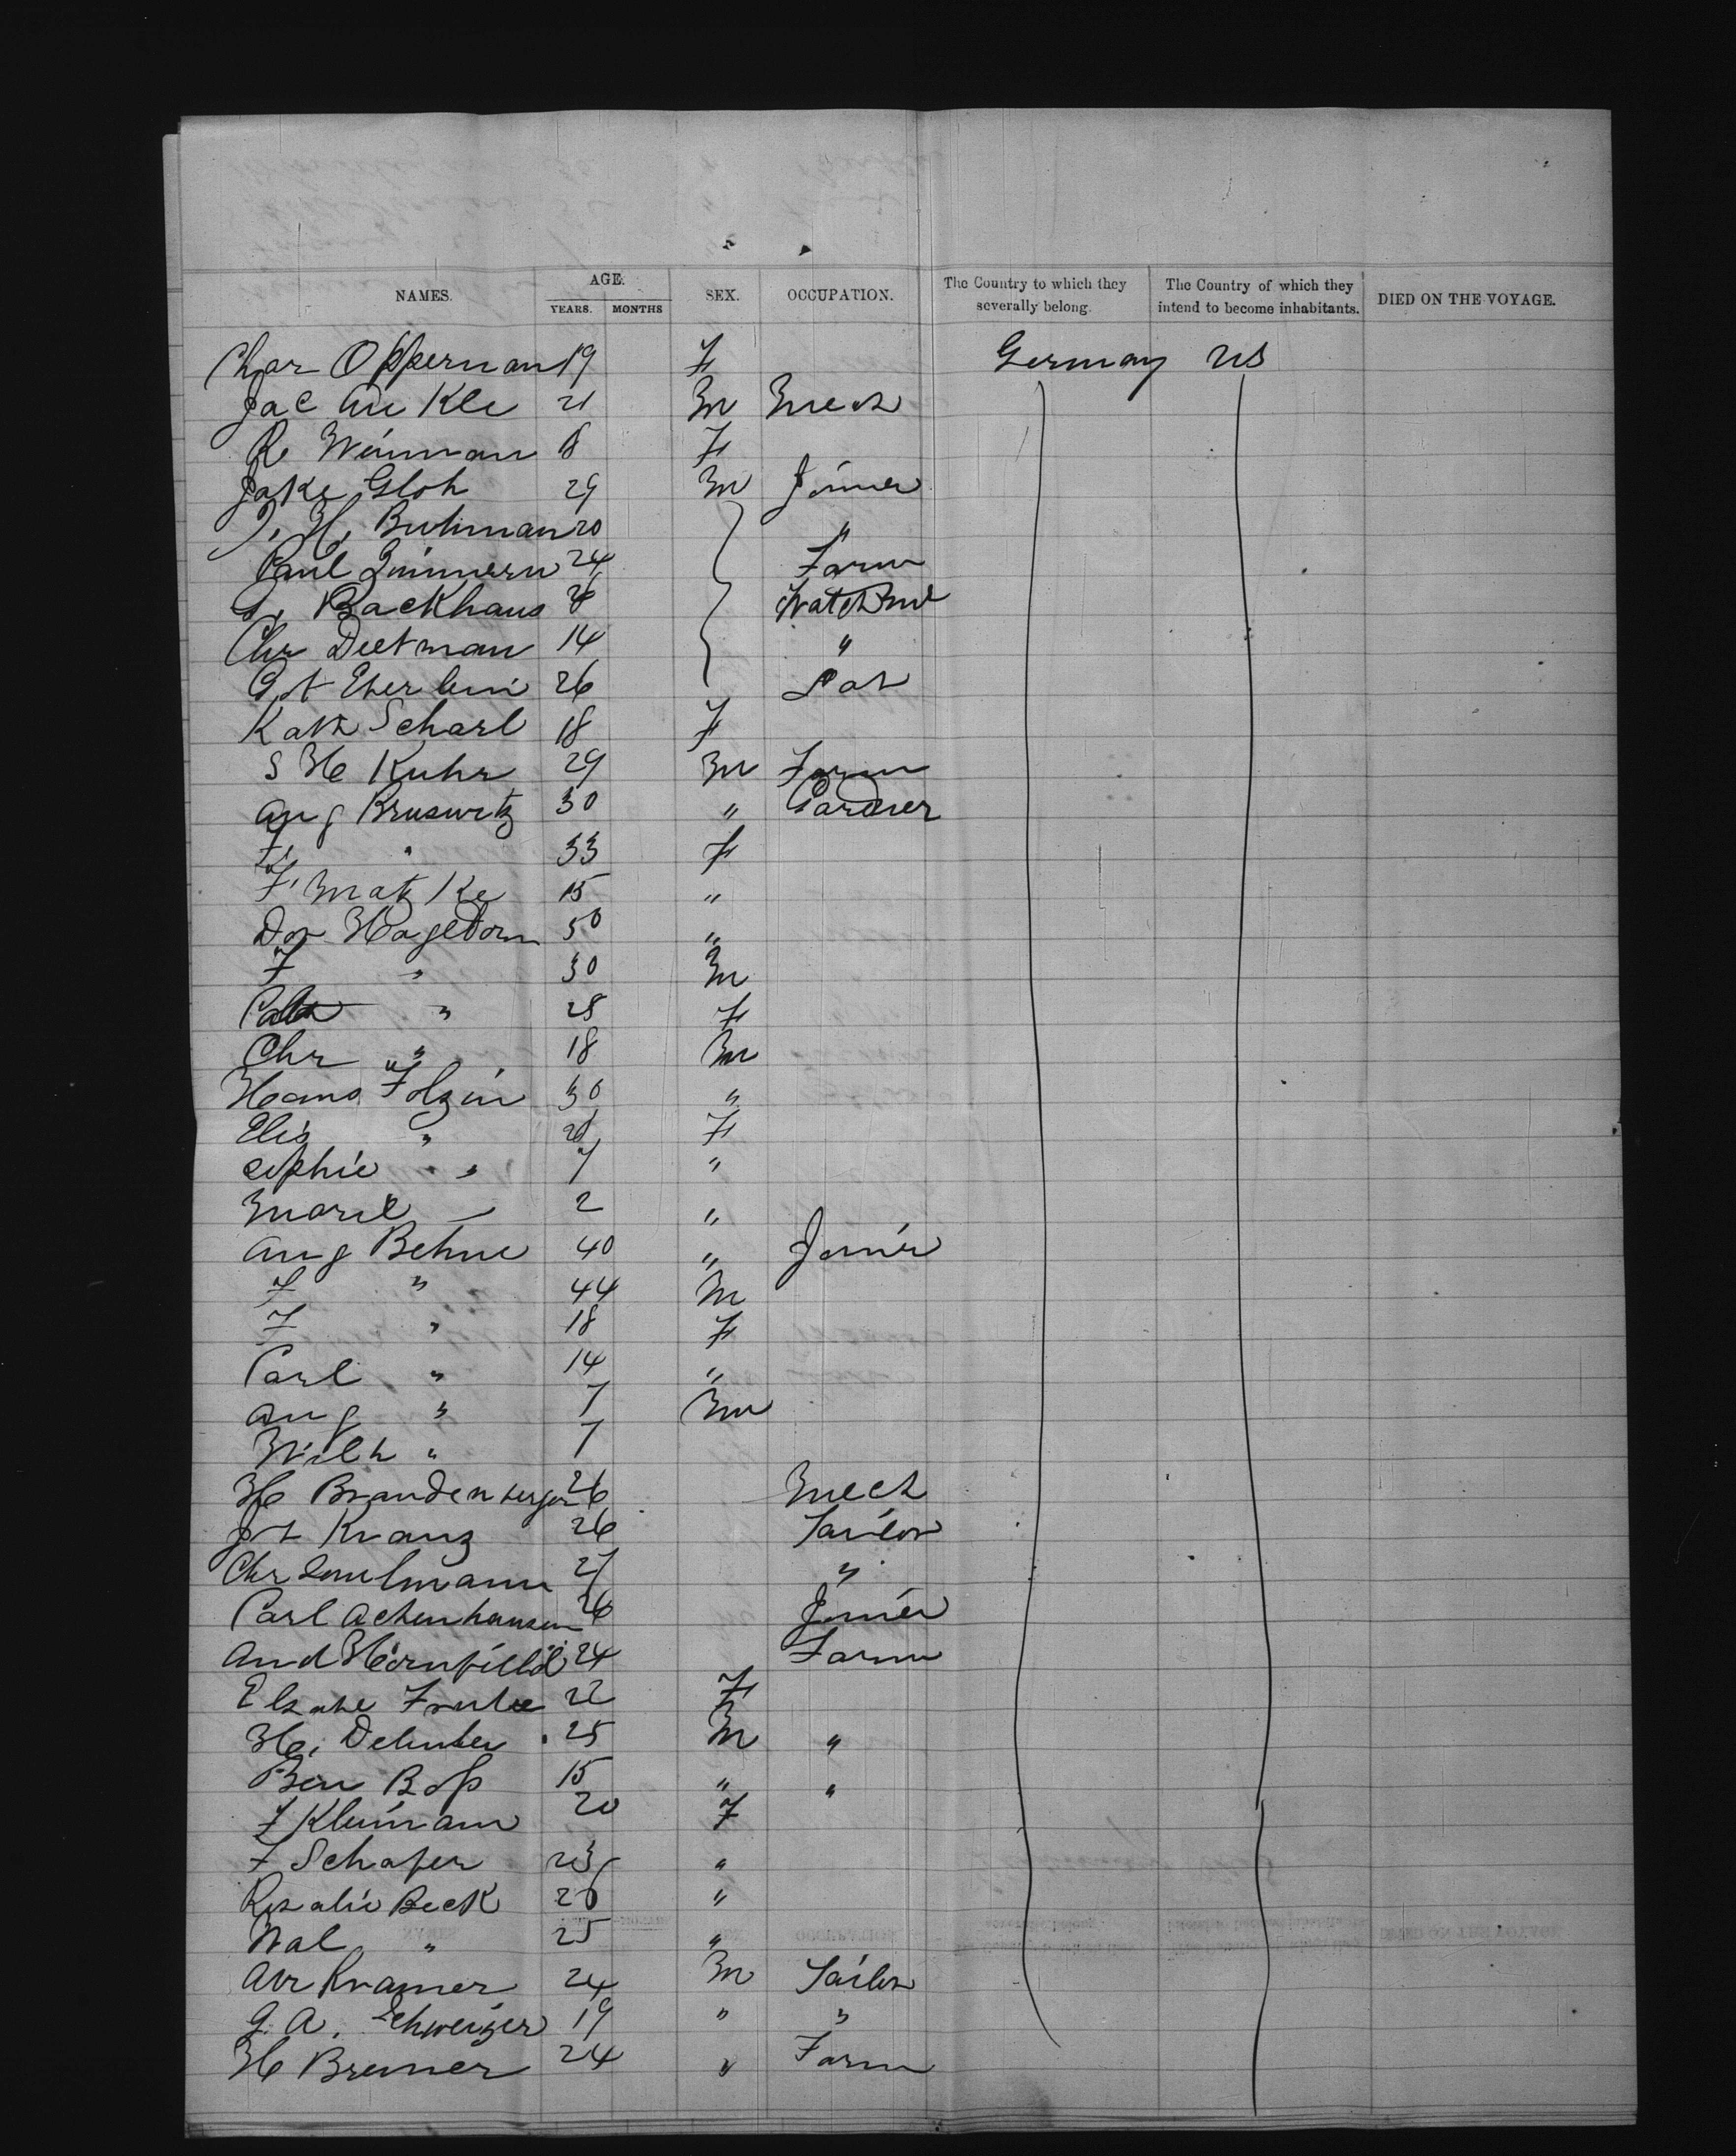 NAMES. AGE. SEX. OCCUPATION. The Country to which they severally belong. The Country of which they intend to become inhabitants. DIED ON THE VOYAGE.
YEARS. MONTHS
Char Opperman 19 F Germany US
Jac 21 M Mech
R Weinman 18 F
Jake Gloh 29 M Joiner
H. Buhman 20 "
Paul Zimmern 24 Farm
Backhaus Watchm
Chr Dietman 14 "
Gt Eberlein 26
Kath Scharl 18 F
S H Kuhr 29 M Farm
Aug Bruswitz 30 " Gardner
F. " 33 F
F. Matzke 15 "
Dor Hagedorn 50 "
F " 30 M
" 28 F
Chr " 18 M
Hans Folzin 30 "
Elis " F
Sophie " 7 "
Marie " 2 "
Aug Behne 40 " Joiner
F " 44 M
F " 18 F
Carl " 14 "
Aug " 7 M
Wilh " 7
H Brandenberger 26 Mech
Jt Kranz 26 Tailor
Chr 27 "
Carl Achenhausen 26 Joiner
And Hornfield 24 Farm
Elsabe 22 F
H. 25 M "
Ben Boss 15 " "
F Kleinman 20 F
F Schafer 23 "
Rosalie Beck "
Wal " 25 "
Abr Kramer 24 M Tailor
G. A. Schweizer 19 " "
H Bremer 24 " Farm